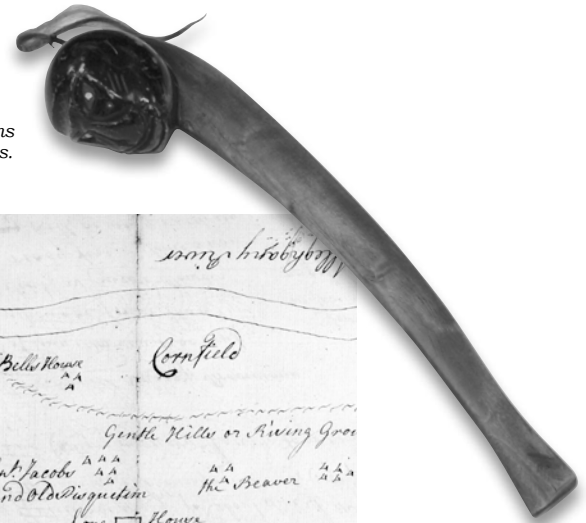 ns
s.
Alleghgany River
Bells House
Cornfield
Gentle Hills or Rising Grou
Jacobs
the Beaver
nd Old Pisquetim
Long House